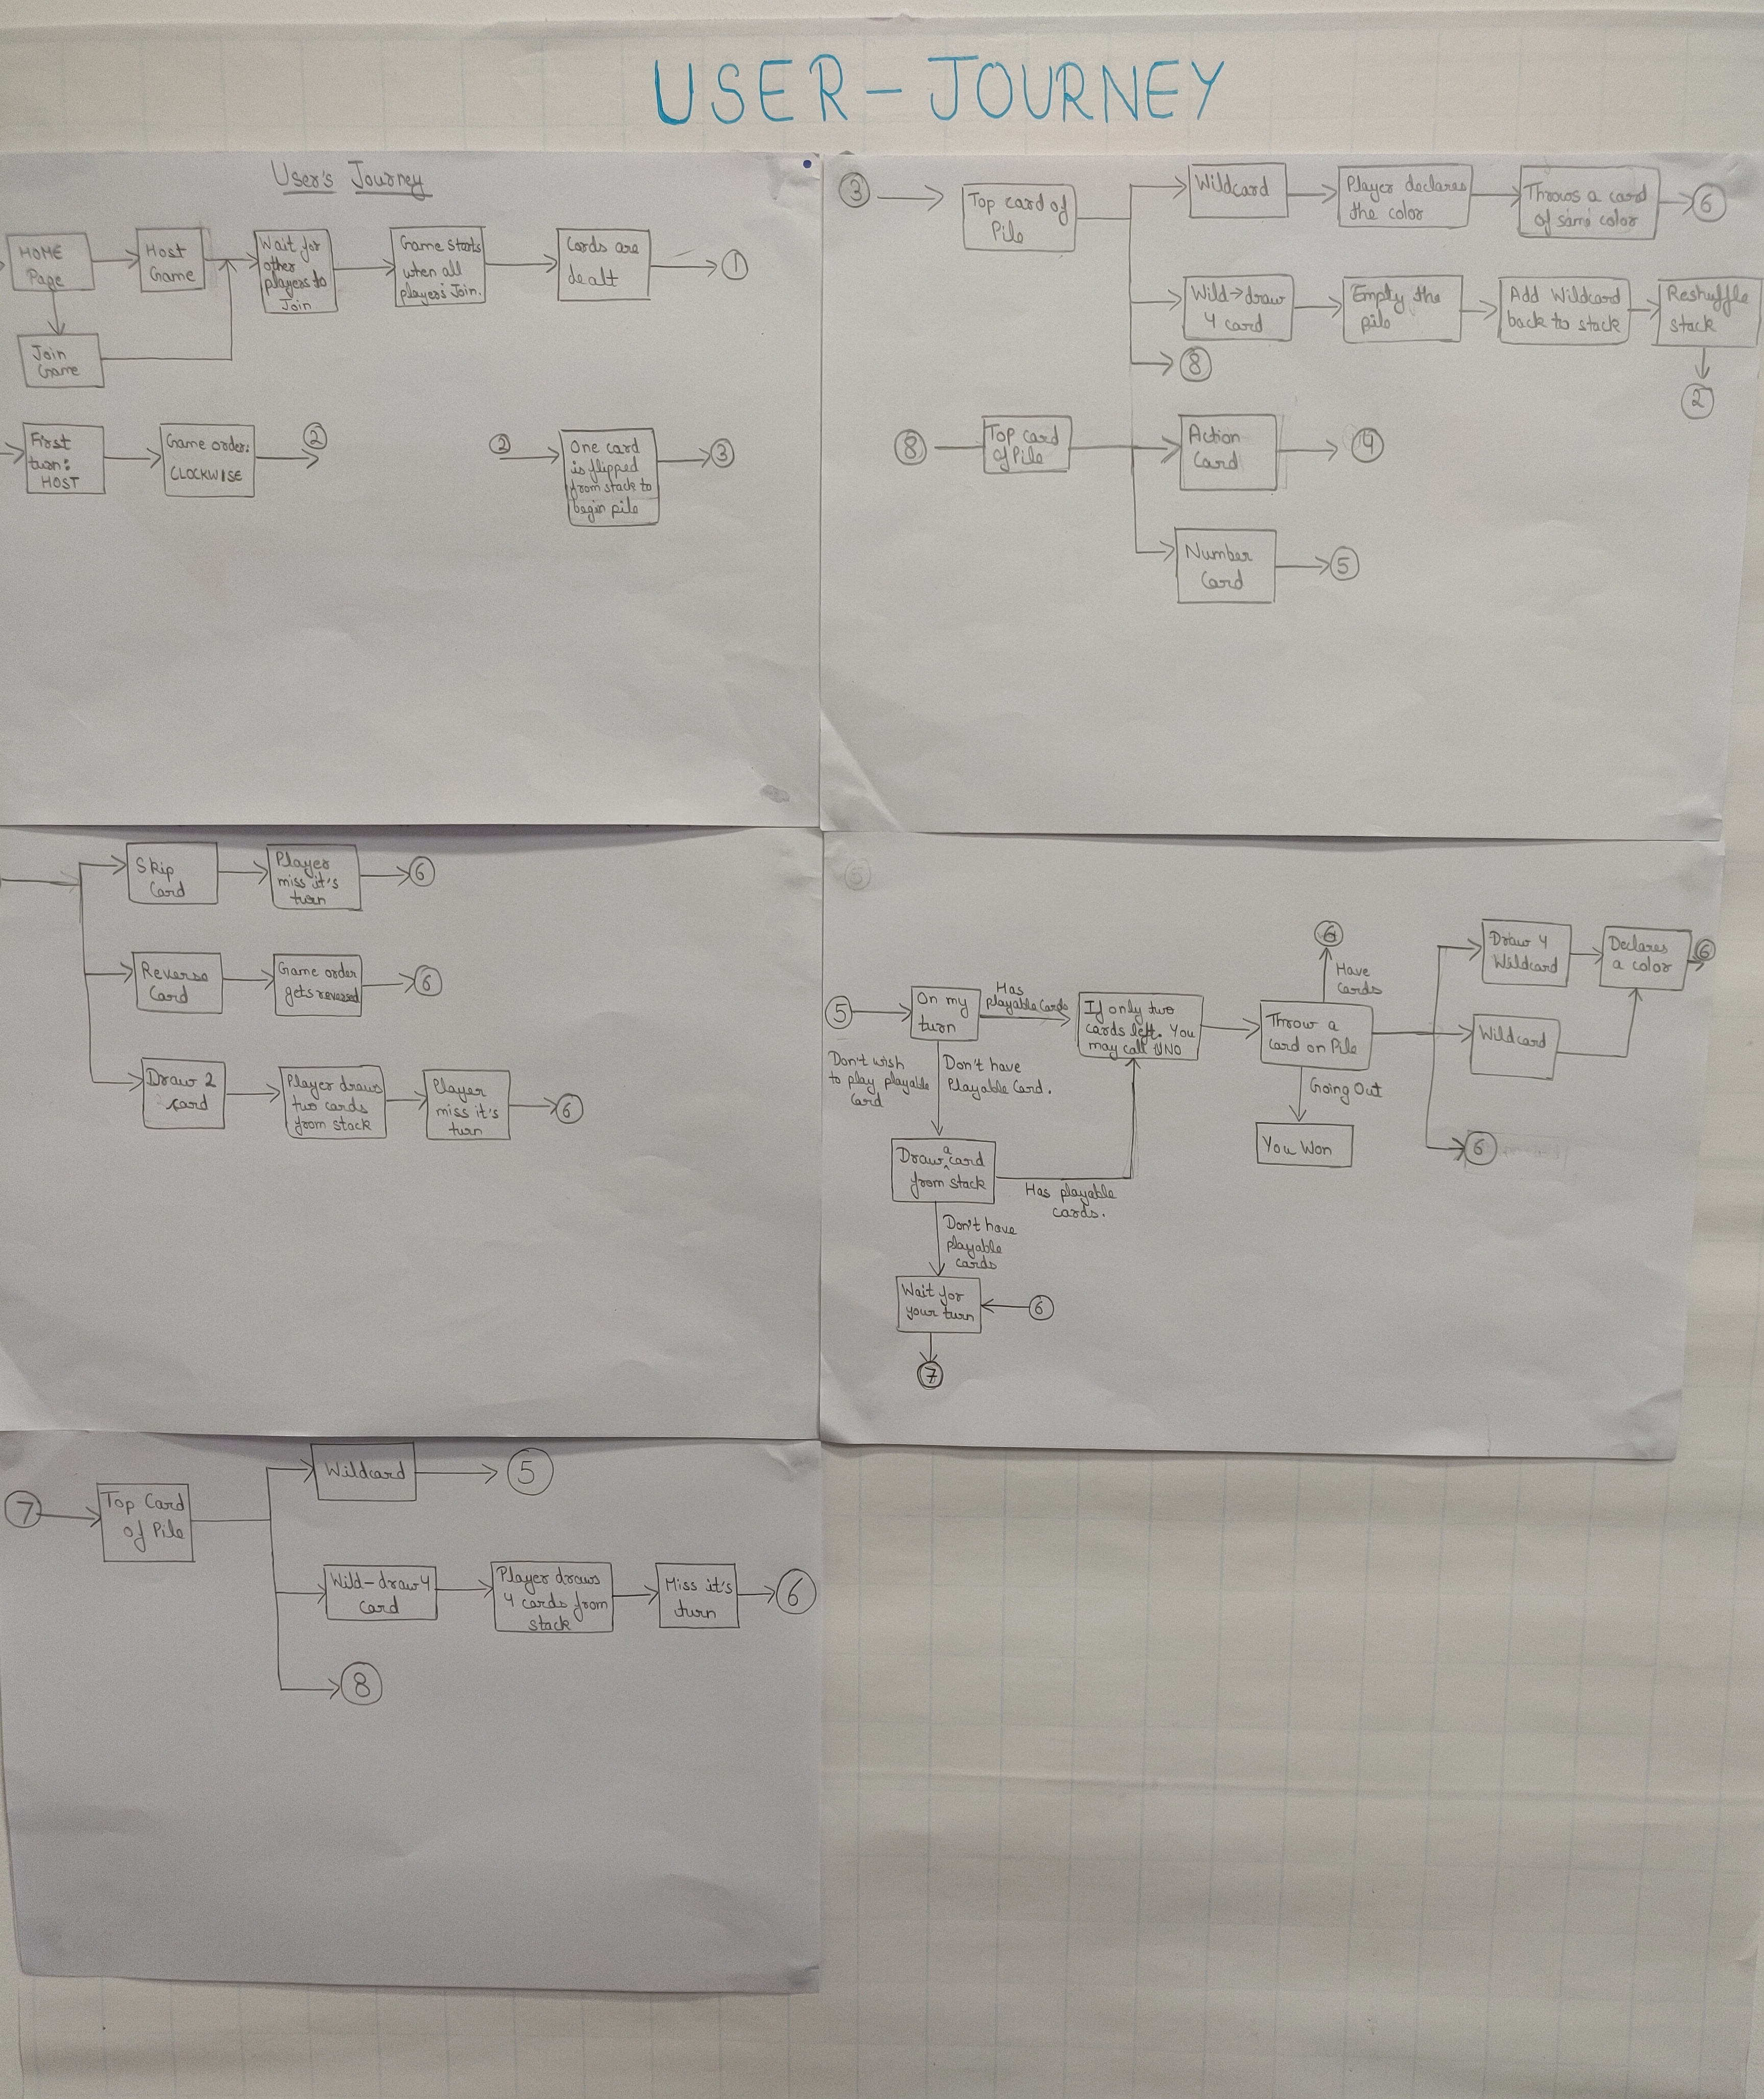 USER - JOURNEY
User's Journey
HOME
Page
Host
Game
Wait for
other
players to
Join
Game starts
when all
players Join.
Cards are
dealt
1
Join
Game
First
turn:
HOST
Game order:
CLOCKWISE
2
2
One card
is flipped
from stack to
begin pile
3
3
Top card of
Pile
Wildcard
Player declares
the color
Throws a card
of same color
6
Wild→draw
4 card
Empty the
pile
Add Wildcard
back to stack
Reshuffle
stack
2
8
8
Top card
of Pile
Action
Card
4
Number
Card
5
Skip
Card
Player
miss it's
turn
6
Reverse
Card
Game order
gets reversed
6
Draw 2
card
Player draws
two cards
from stack
Player
miss it's
turn
6
5
5
On my
turn
Has
playable Cards
If only two
cards left. You
may call UNO
Throw a
card on Pile
6
Have
cards
Draw 4
Wildcard
Declares
a color
6
Wildcard
6
Going Out
You Won
Don't wish
to play playable
card
Don't have
Playable Card.
Draw a card
from stack
Has playable
cards.
Don't have
playable
cards
Wait for
your turn
6
7
7
Top Card
of Pile
Wildcard
5
Wild-draw 4
Card
Player draws
4 cards from
stack
Miss it's
turn
6
8